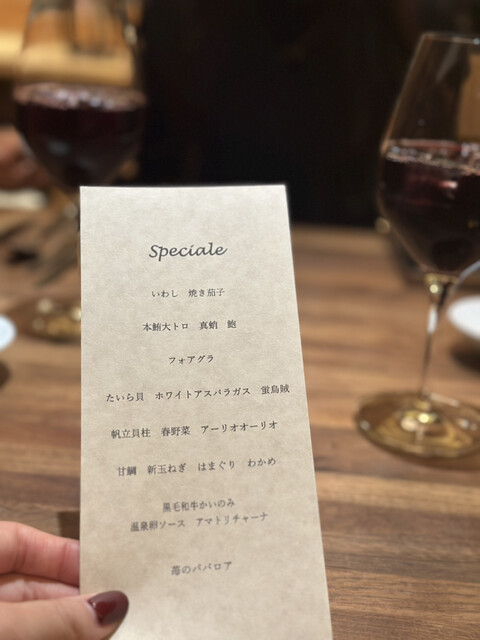 Speciale
いわし 焼き茄子
本鮪大トロ 真蛸 鮑
フォアグラ
たいら貝 ホワイトアスパラガス 蛍烏賊
帆立貝柱 春野菜 アーリオオーリオ
甘鯛 新玉ねぎ はまぐり わかめ
黒毛和牛かいのみ
温泉卵ソース アマトリチャーナ
苺のババロア